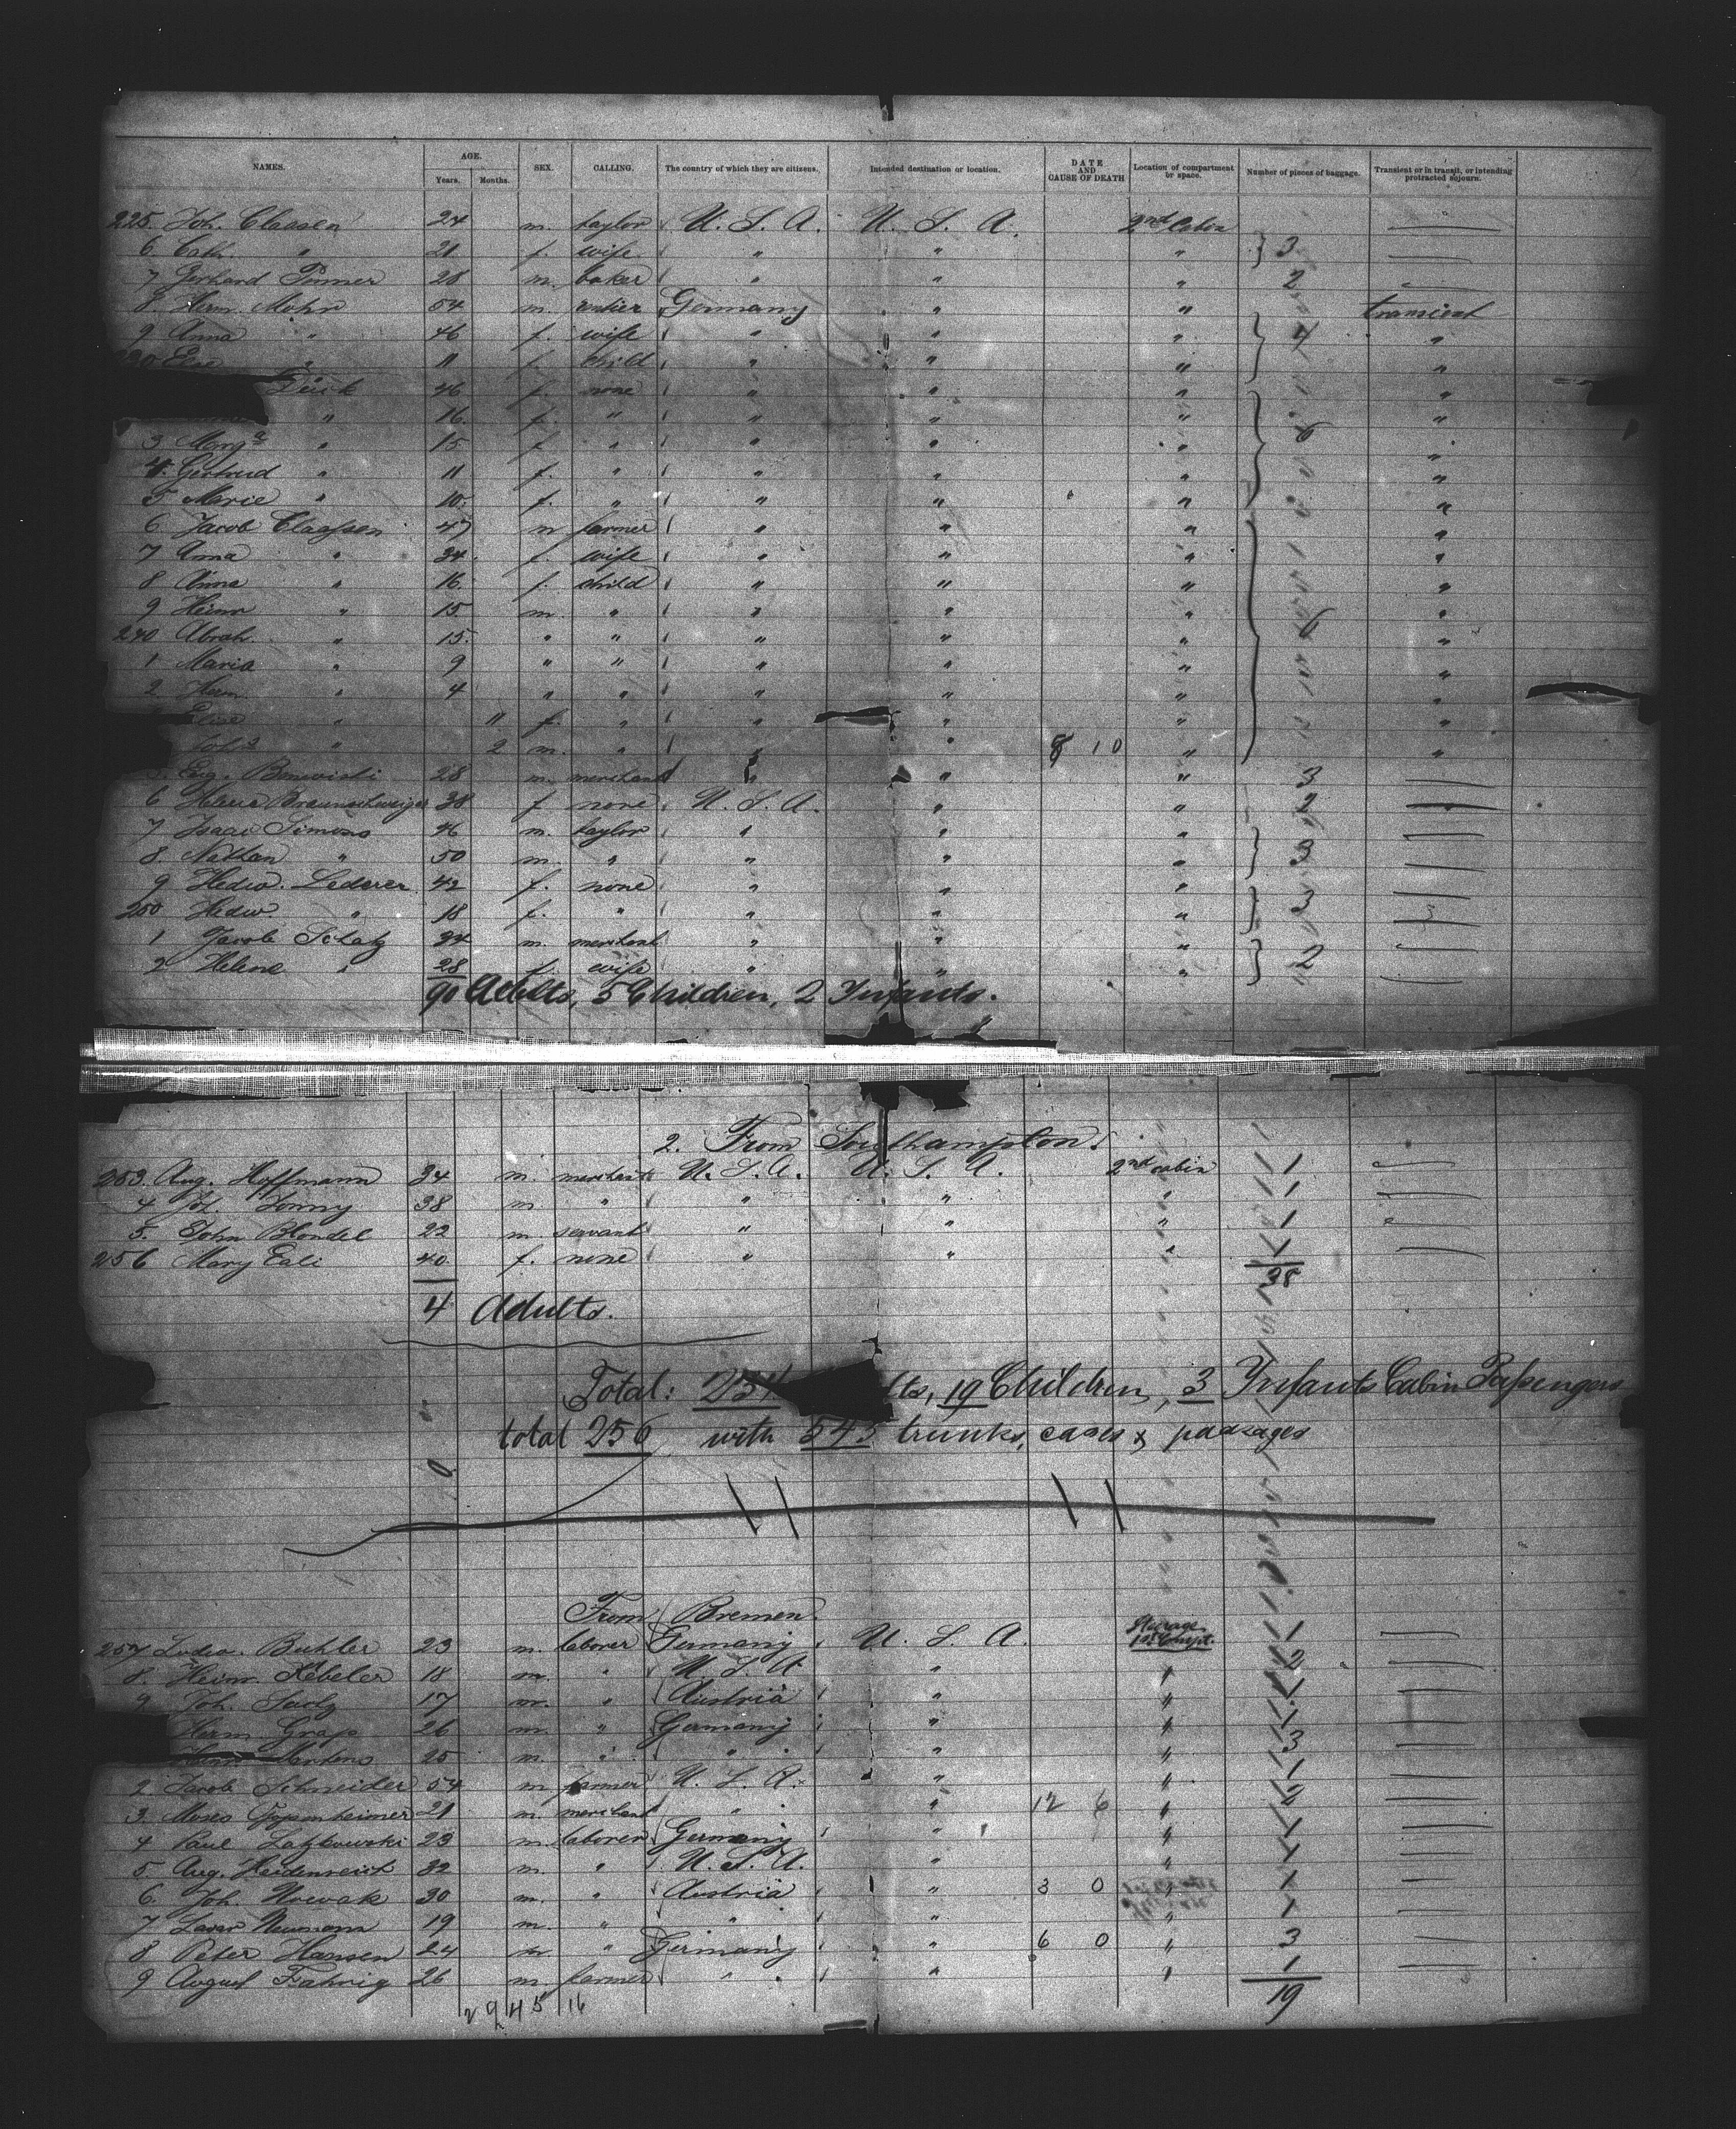 NAMES. AGE. Years. Months. SEX. CALLING. The country of which they are citizens. Intended destination or location. DATE AND CAUSE OF DEATH Location of compartment or space. Number of pieces of baggage. Transient or in transit, or intending protracted sojourn.
225. Joh. Claasen 24 m. taylor U. S. A. U. S. A. 2nd Cabin
6. Cath. " 21 f. wife " " " } 3
7 Gerhard 28 m. baker " " " 2
8. Herm. Mohr 54 m. rentier Germany " " transient
9 Anna " 46 f. wife " " " } 4 "
230 Else " 11 f. child " " " "
46 f. none " " " "
" 16 f. " " " " "
3 Marg a " 15 f. " " " " 6 "
4. Gertrud " 11 f. " " " " "
5 Marie " 10. f. " " " " "
6. Jacob Claassen 47 m farmer " " " "
7 Anna " 34. f. wife " " " "
8 Anna " 16. f. child " " " "
9 Heinr " 15. m. " " " " 6 "
240 Abrah. " 15. " " " " " "
1 Maria " 9 " " " " " "
2 Herm. " 4 " " " " " "
Elise " 11 f. " " " " "
" 2 m. " " " 8 10 " "
28 m. merchant " " " 3
6 Helene Braunschweiger 38 f none U. S. A. " " 2
7 Isaac Simons 46 m. taylor " " "
8. Nathan " 50 m. " " " " } 3
9 Hedw. Lederer 42 f. none " " "
250 Hedw. " 18 f. " " " " } 3
1 Jacob Schatz 34 m. merchant " " "
2 Helene " 28 f. wife " " " } 2
90 Adults, 5 Children, 2 Infants.
2. From Southampton.
253. Aug. Hoffmann 34 m. merchant U. S. A. U. S. A. 2nd cabin 1
4 38 m. " " " " 1
5. John Blondel 22 m servant " " " 1
256 Mary 40. f. none " " " 1
38
4 Adults.
Total: lts, 19 Children, 3 Infants Cabin Passengers
total 256 with 545 trunks, cases & packages
From Bremen.
257 Buhler 23 m. laborer Germany U. S. A. Steerage 1st Compt. 1
8. Heinr. Kebeler 18 m. " U. S. A. " " 2
9 Joh. 17 m. " Austria " " 1
Herm. 26 m. " Germany " " 1
25 m. " " " " 3
2 Jacob Schneider 54 m farmer U. S. A. " " 1
3. Moses 21 m. merchant " " 12 6 " 2
4 Paul 23 m. laborer Germany " " 1
5 Aug. Heidenreich 32 m. " U. S. A. " " 1
6. Joh. Nowak 30 m. " Austria " 3 0 " 1
7 Neumann 19 m. " " " " 1
8 Peter Hansen 24 m " Germany " 6 0 " 3
9 August Fahrig 26 m. farmer " " " 1
19
2945 16